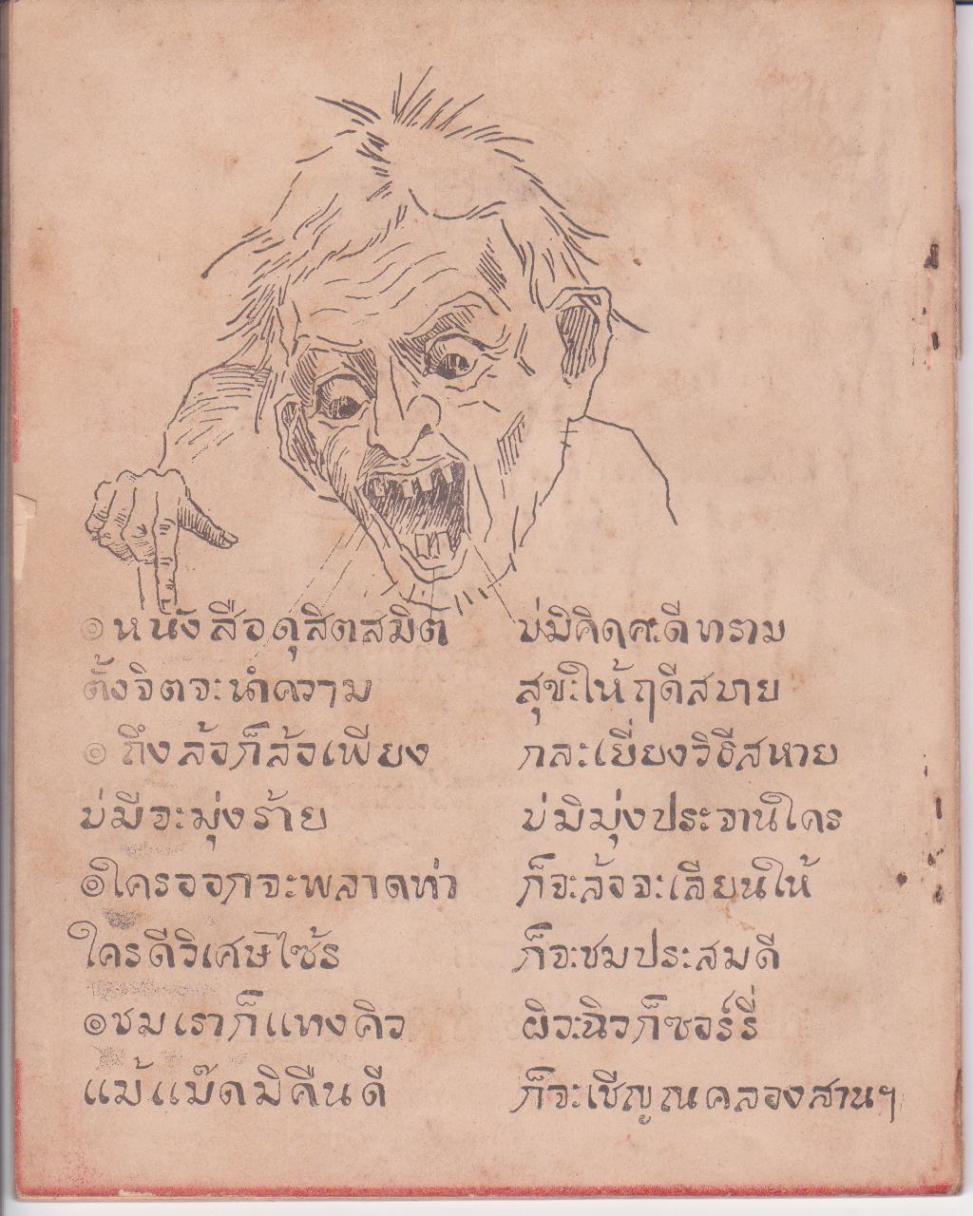 ๏ หนังสือดุสิตสมิต บ่มิคิดคะดีทราม
ตั้งจิตจะนำความ สุขะให้ฤดีสบาย
๏ ถึงล้อก็ล้อเพียง กละเยี่ยงวิธีสหาย
บ่มีจะมุ่งร้าย บ่มิมุ่งประจานใคร
๏ ใครออกจะพลาดท่า ก็จะล้อจะเลียนให้
ใครดีวิเศษไซ้ร ก็จะชมประสมดี
๏ ชมเราก็แทงคิว ผิวะฉิวก็ซอร์รี่
แม้แม๊ดมิคืนดี ก็จะเชิญณคลองสานฯ